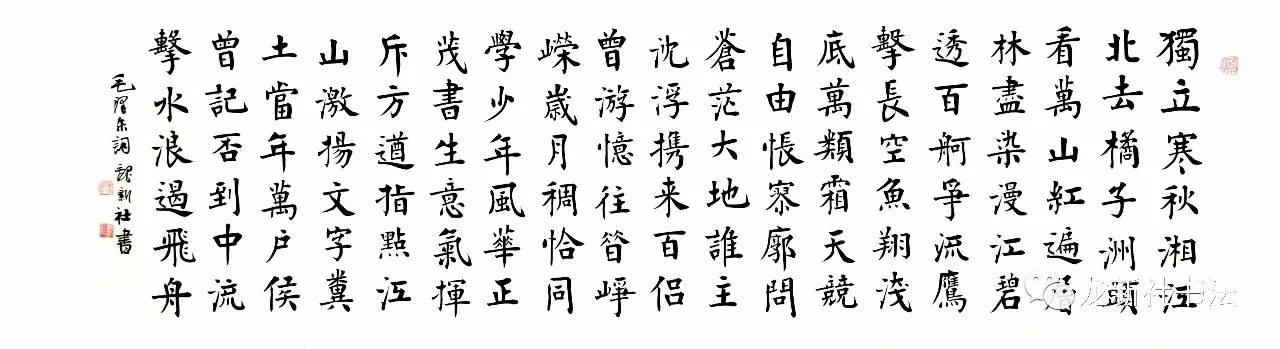 獨立寒秋湘江
北去橘子洲頭
看萬山紅遍層
林盡染漫江碧
透百舸爭流鷹
擊長空魚翔淺
底萬類霜天競
自由悵寥廓問
蒼茫大地誰主
沈浮携来百侣
曾游憶往昔崢
嶸歲月稠恰同
學少年風華正
茂書生意氣揮
斥方遒指點江
山激揚文字糞
土當年萬户侯
曾記否到中流
擊水浪遏飛舟
毛澤东詞 龍新社書
龙新社书法